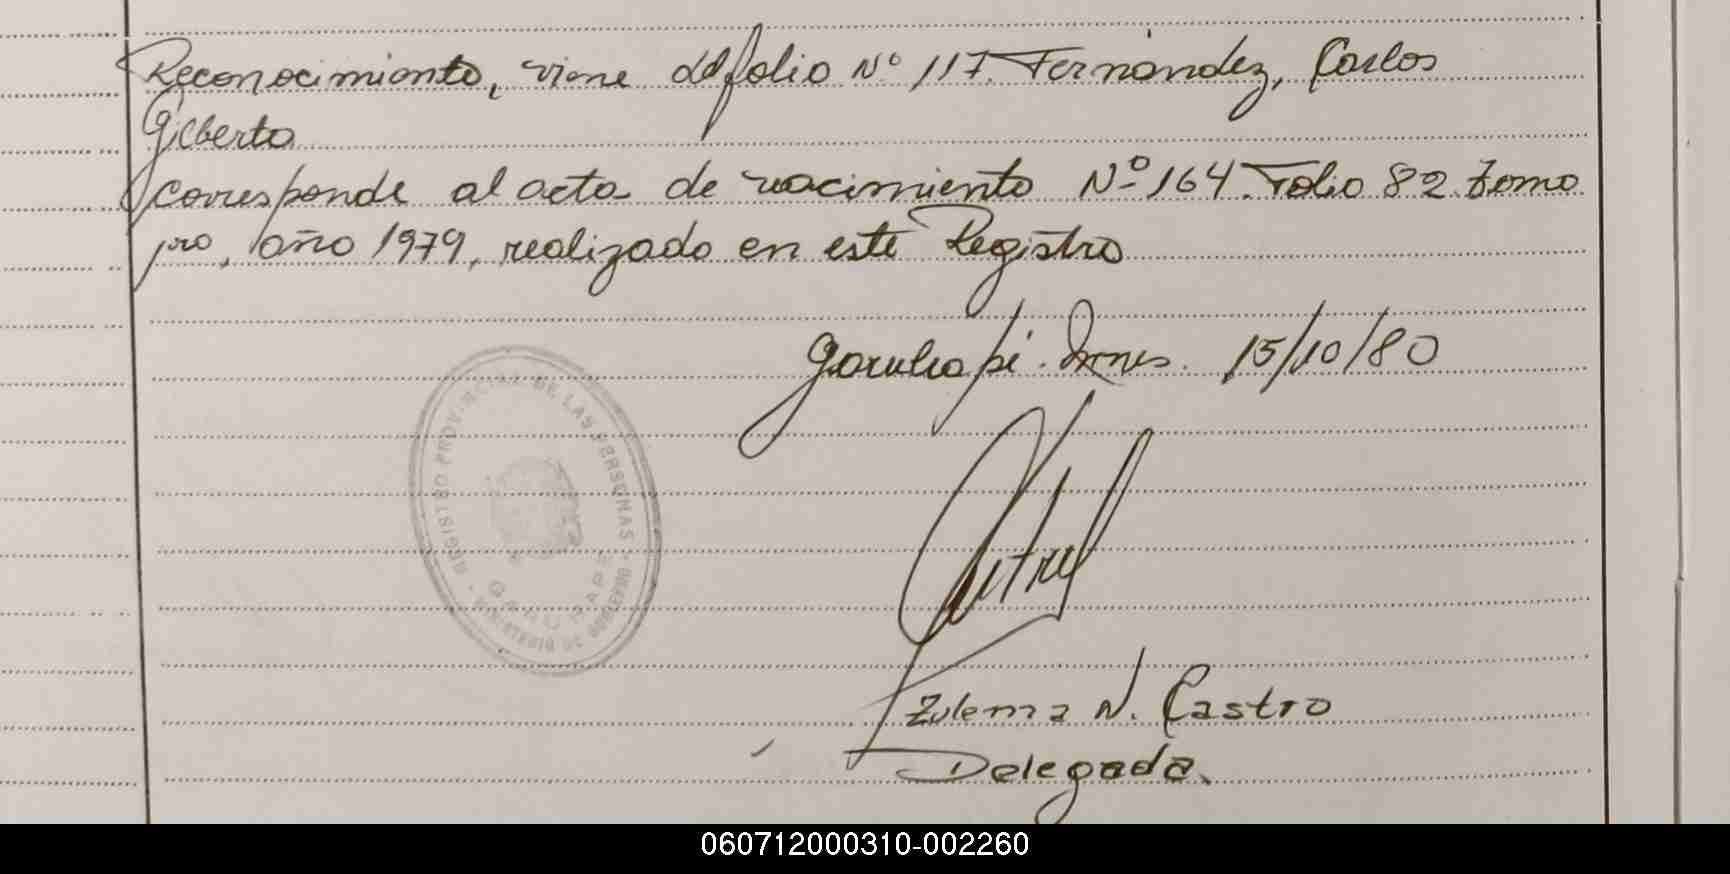 Reconocimiento, viene del folio Nº 117. Fernández, Carlos
Gilberto
corresponde al acta de nacimiento Nº 164. Folio 82 tomo
pro, año 1979, realizado en este Registro
Garuhapé. Mnes. 15/10/80
REGISTRO PROVINCIAL DE LAS PERSONAS - MINISTERIO DE GOBIERNO -
GARUHAPE
Zulema N. Castro
Delegada.
060712000310-002260